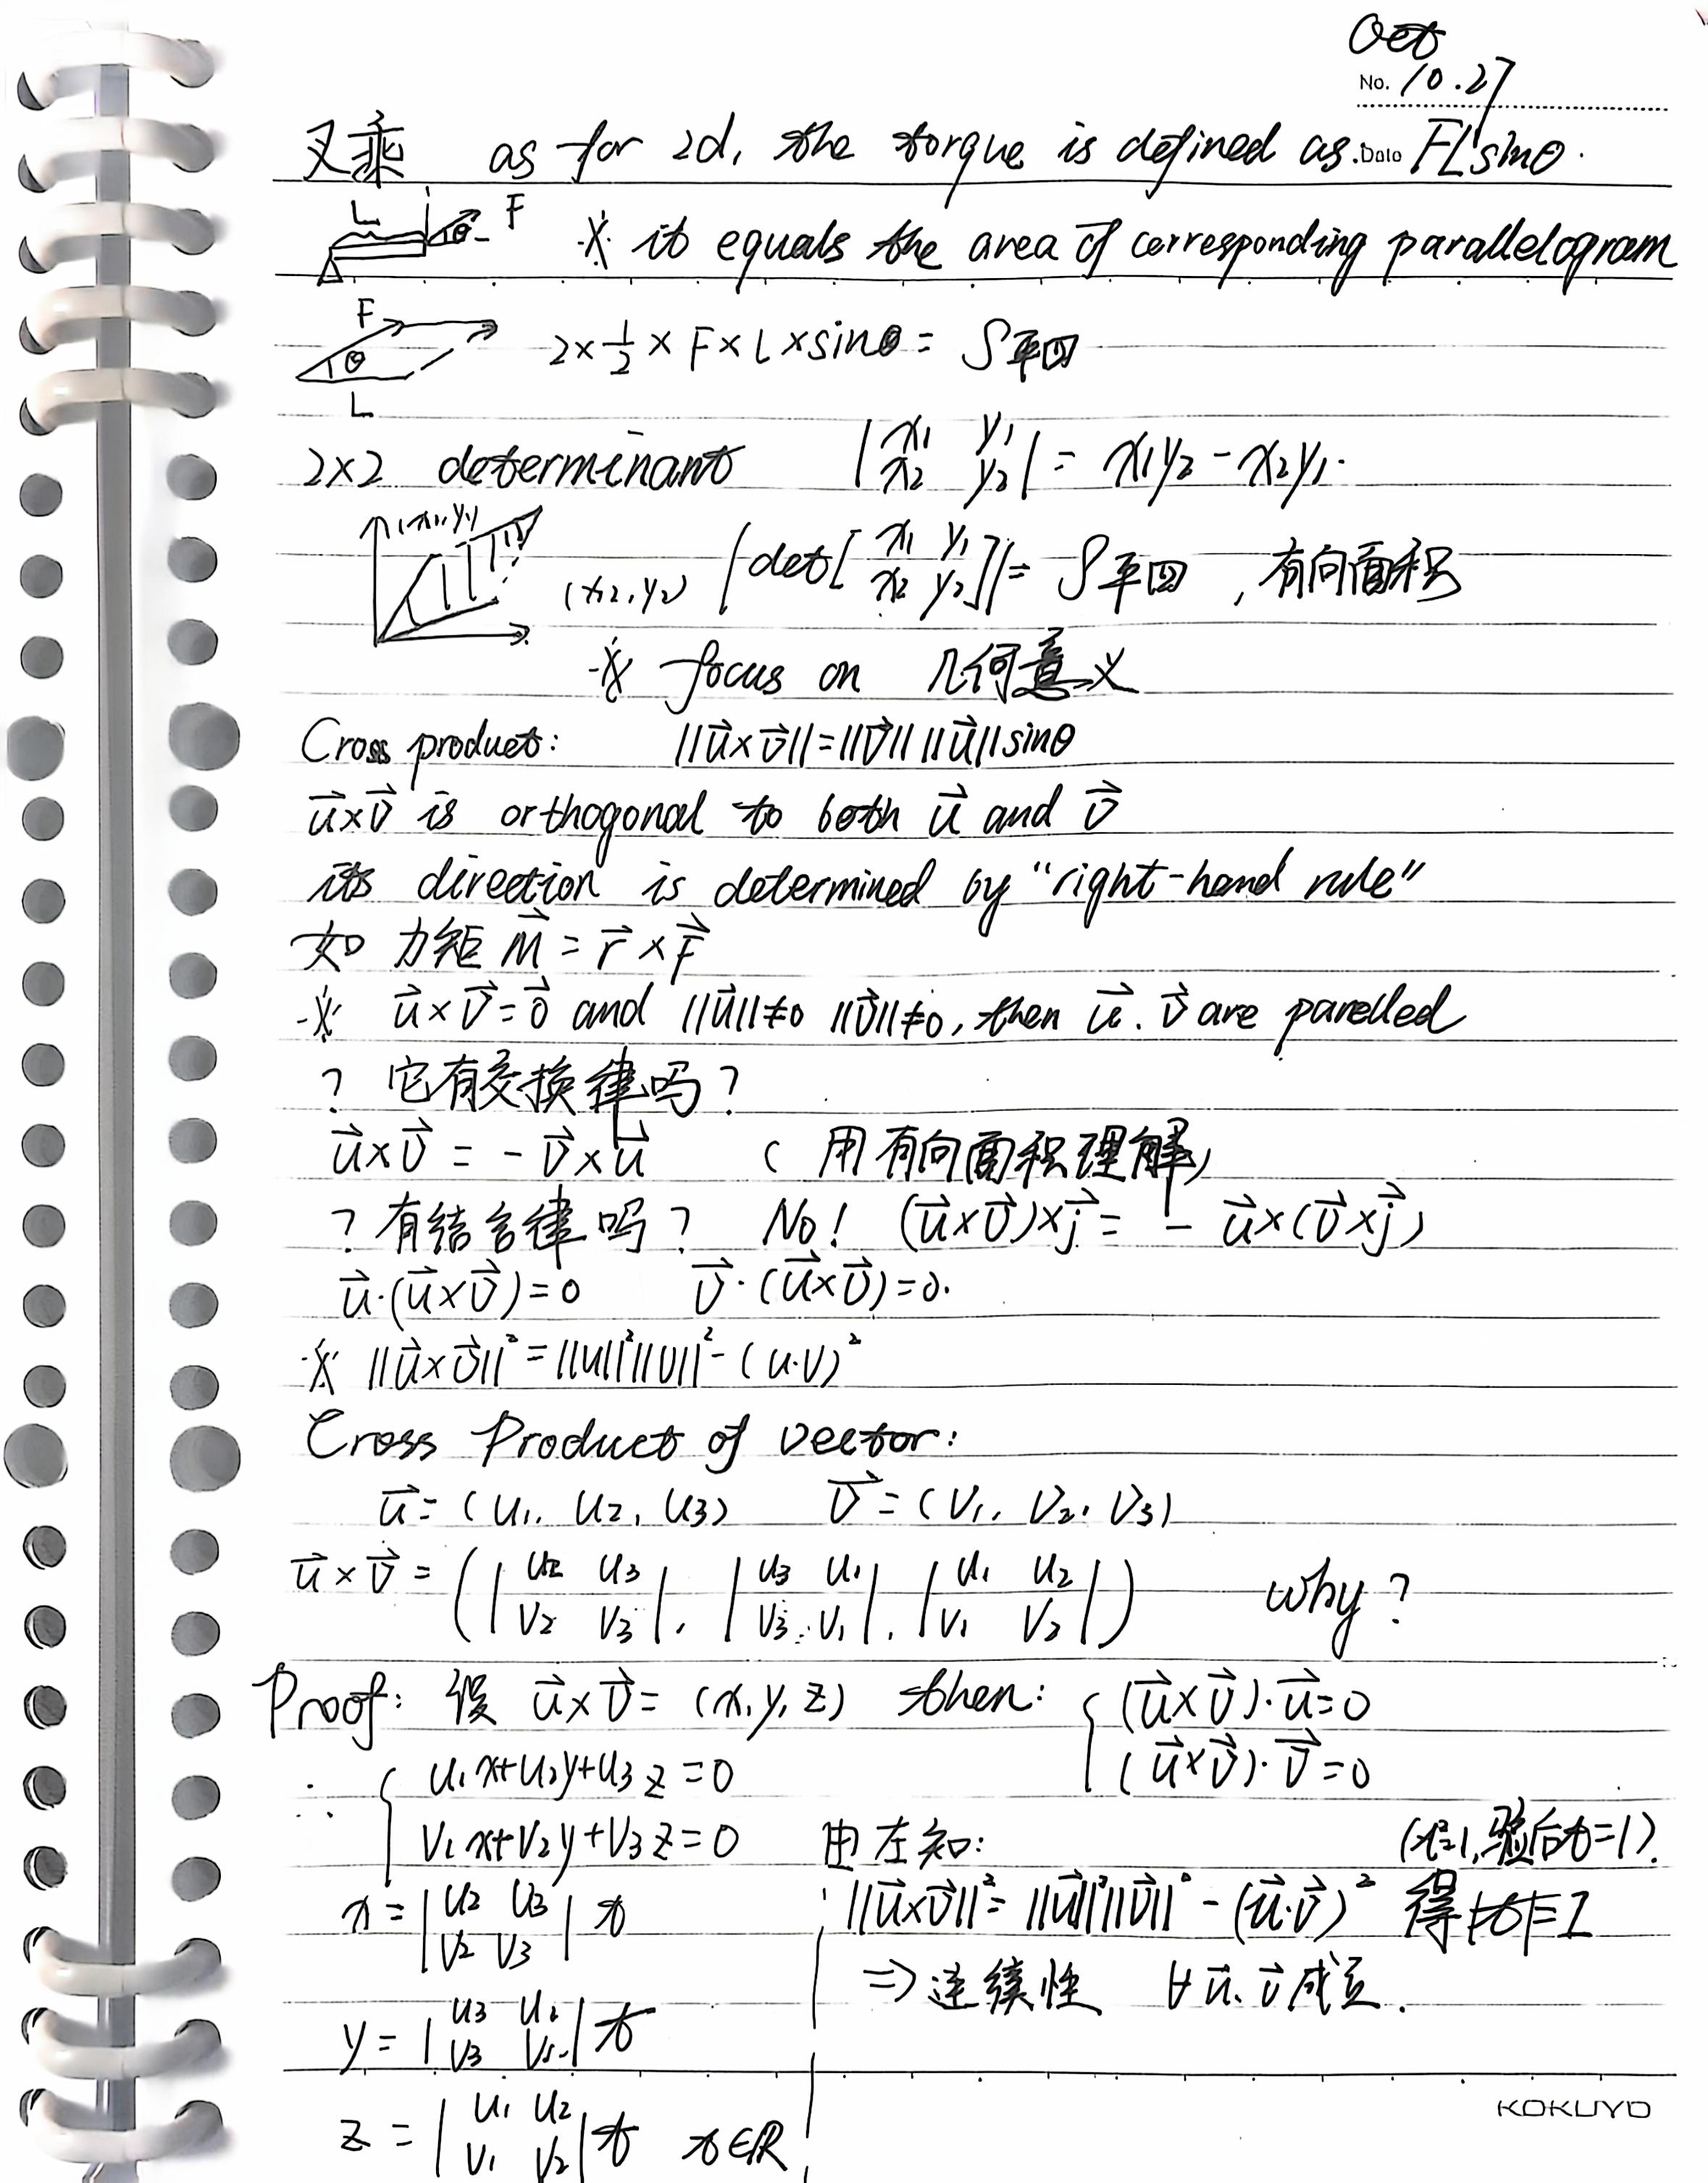 Oct
No. 10.27
叉乘 as for 2d, the torque is defined as. Date FLsinθ.
L θ F ※ it equals the area of corresponding parallelogram
F θ L 2×1/2×F×L×sinθ = S平四
2×2 determinant |x₁ y₁; x₂ y₂| = x₁y₂ - x₂y₁.
(x₁,y₁) (x₂,y₂) |det[x₁ y₁; x₂ y₂]| = S平四 , 有向面积
※ focus on 几何意义
Cross product: ||u⃗×v⃗|| = ||v⃗|| ||u⃗|| sinθ
u⃗×v⃗ is orthogonal to both u⃗ and v⃗
its direction is determined by "right-hand rule"
如 力矩 M⃗ = r⃗ × F⃗
※ u⃗×v⃗=0⃗ and ||u⃗||≠0 ||v⃗||≠0, then u⃗. v⃗ are parelled
? 它有交换律吗?
u⃗×v⃗ = - v⃗×u⃗ (用有向面积理解)
? 有结合律吗? No! (u⃗×v⃗)×j⃗ = - u⃗×(v⃗×j⃗)
u⃗·(u⃗×v⃗)=0 v⃗·(u⃗×v⃗)=0.
※ ||u⃗×v⃗||² = ||u||²||v||² - (u·v)²
Cross Product of vector:
u⃗ = (u₁, u₂, u₃) v⃗ = (v₁, v₂, v₃)
u⃗×v⃗ = (|u₂ u₃; v₂ v₃|, |u₃ u₁; v₃ v₁|, |u₁ u₂; v₁ v₂|) why?
Proof: 假 u⃗×v⃗ = (x,y,z) then: { (u⃗×v⃗)·u⃗=0
(u⃗×v⃗)·v⃗=0
∴ { u₁x+u₂y+u₃z=0
v₁x+v₂y+v₃z=0 由左知: (t²=1,验后t=1).
x = |u₂ u₃; v₂ v₃| t ||u⃗×v⃗||² = ||u⃗||²||v⃗||² - (u⃗·v⃗)² 得|t|=1
⇒连续性 ∀u⃗、v⃗成立.
y = |u₃ u₁; v₃ v₁| t
z = |u₁ u₂; v₁ v₂| t t∈R
KOKUYO